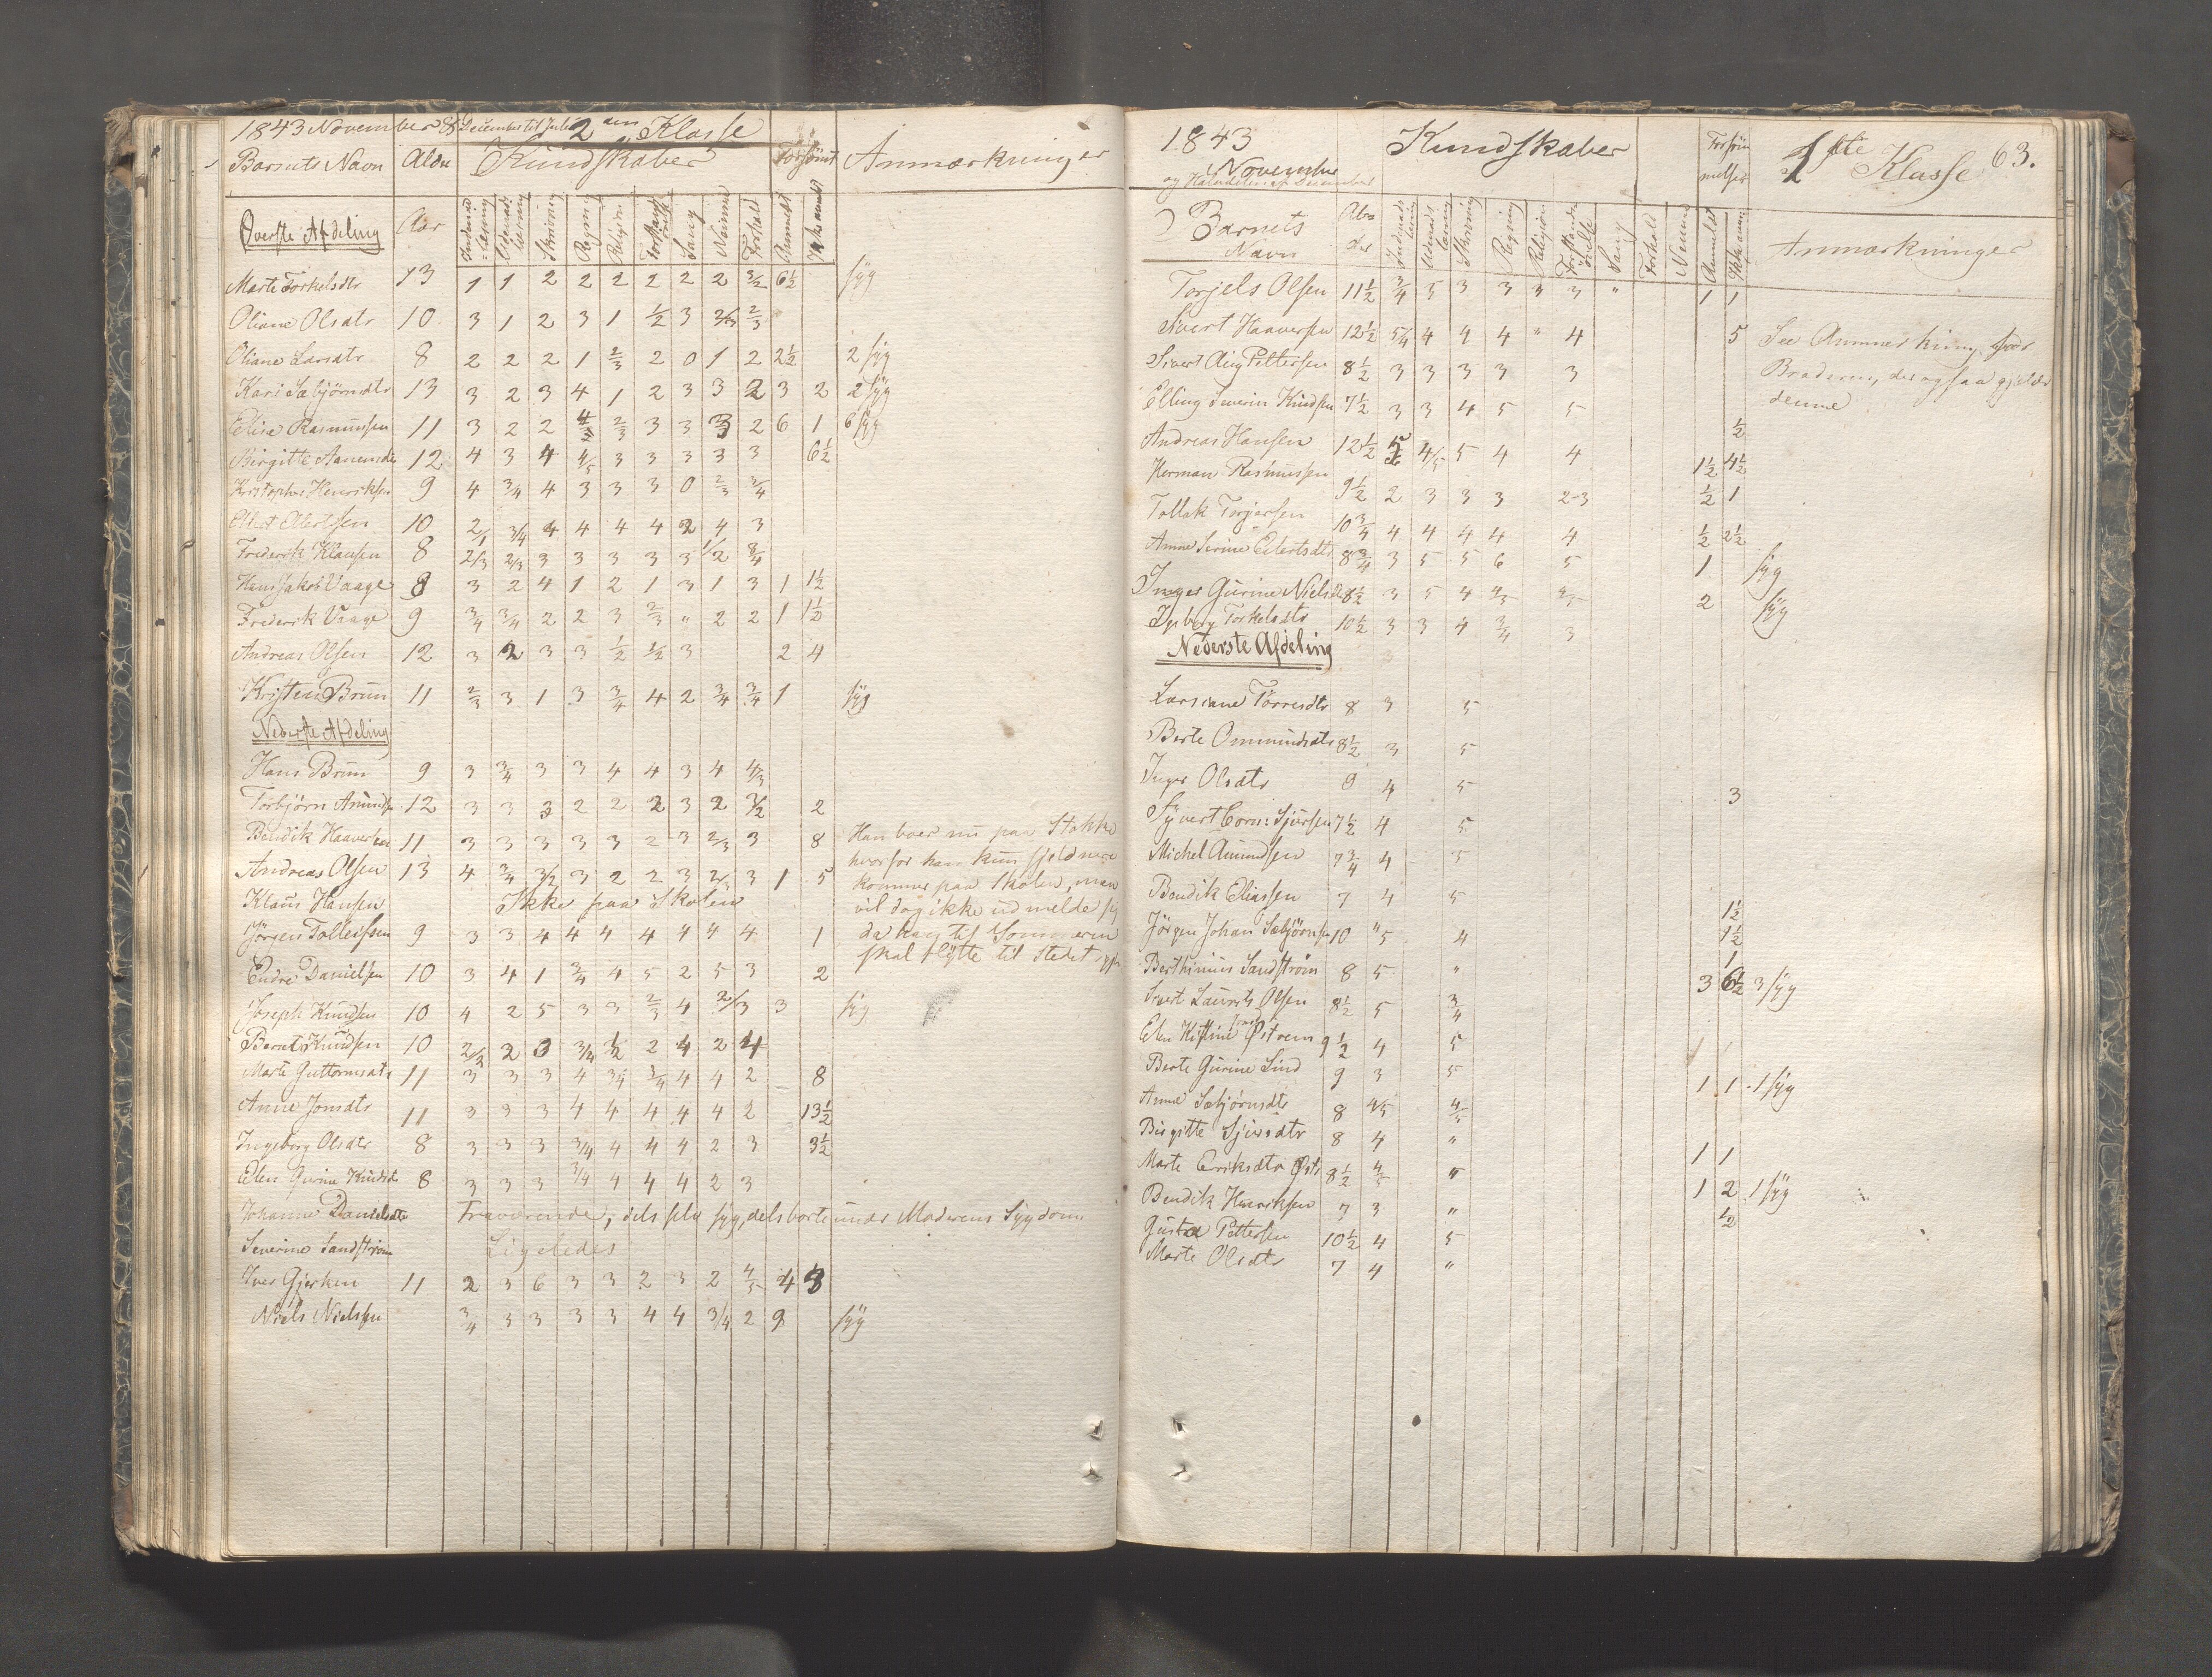 1843 November & December til Juli 2den Klasse
Barnets Navn Alder Kundskaber Forsømt Anmærkninger
Øverste Afdeling Aar Indenadlæsning Udenadlæsning Skrivning Regning Religion Forstandsøvelse Sang Nemme Forhold Anmeldt Ikke anmeldt
Marte Torkelsdtr 13 1 1 2 2 2 2 2 2 3/2 6½ syg
Oliane Olsdtr 10 3 1 2 3 1 ½ 3 2/3 2/3
Oliane Larsdtr 8 2 2 2 1 2/3 2 0 1 2 2½ 2 syg
Kari Sæbjörnsdtr 13 3 2 3 4 1 2 3 3 2 3 2 2 syg
Elisa Rasmussen 11 3 2 2 2/3 3 3 2 6 1 6 syg
Birgitte Aanensdtr 12 4 3 4 4/5 3 3 3 3 3 6½
Kristopher Henriksen 9 4 3/4 4 3 3 3 0 2/3 3/4
Eilert Eilertsen 10 2/1 3/4 4 4 4 4 2 4 3
Frederik Klausen 8 2/3 2/3 3 3 3 3 3 1/2 3/4
Hans Jakob Vaage 8 3 2 4 1 2 1 3 1 3 1 1½
Frederik Vaage 9 3/4 3/4 2 2 3 2/3 " 2 2 1 1½
Andreas Olsen 12 3 2 3 3 ½ ½ 3 2 4
Kristen Brun 11 2/3 3 1 3 3/4 4 2 3/4 3/4 1 syg
Nederste Afdeling
Hans Brun 9 3 3/4 3 3 4 4 3 4 4/3
Torbjörn Amundsen 12 3 3 3 2 2 2 3 2 3/2 2
Bendik Haaversen 11 3 3 3 3 3 2 3 2/3 3 8 Han boer nu paa Stokke
Andreas Olsen 13 4 3/4 3/2 3 2 2 3 2/3 3 1 5 hvorfor han kun sjeldnere
kommer paa Skolen, man
Klaus Hansen Ikke paa Skolen vil dog ikke udmelde
Jörgen Tolleifsen 9 3 3 4 4 4 4 4 4 4 1 da han til Sommeren
skal flytte til Stedet
Endre Danielsen 10 3 4 1 3/4 4 5 2 5 3 2
Joseph Knudsen 10 4 2 5 3 3 2/3 4 2/3 3 syg
Bernt Knudsen 10 2/3 2 3 3/4 ½ 2 4 2 4
Marte Guttormsdtr 11 3 3 3 4 3/4 3/4 4 4 2 8
Anne Jonsdtr 11 3 3 3 4 4 4 4 4 2 13½
Ingeborg Olsdtr 8 3 3 3 3/4 4 4 4 2 3 3½
Elen Gurine Knudsd 8 3 3 3 3/4 4 4 4 2 3
Johanne Danielsdtr Fraværende, dels selv syg, dels borte under Moderens Sygdom
Severine Sandstrøm Ligeledes
Iver Gjerken 11 2 3 6 3 3 2 3 2 4/5 4 8
Niels Nielsen 3/4 3 3 3 3 4 4 3/4 2 9 syg
1843
November
og Halvdelen af December
Kundskaber Forsømmelser 1ste Klasse 63.
Barnets Navn Alder Indenadlæsning Udenadlæsning Skrivning Regning Religion Forstandsøvelse Sang Forhold Nemme Anmeldt Ikke anm Anmærkninger
Torjels Olsen 11½ 3/4 5 3 3 " 3 " 1 1
Sivert Haaversen 12½ 5/4 4 4 4 " 4 5 See Anmærkning for
Sivert Aug Pettersen 8½ 3 3 3 3 3 Broderen, der ogsaa gjelder
Elling Severin Knudsen 7½ 3 3 4 5 5 denne
½
Andreas Hansen 12½ 5 4/5 5 4 4 1½ 4½
Herman Rasmussen 9½ 2 3 3 3 2-3 ½ 1
Tollak Torjersen 10¾ 4 4 4 4 4 ½ 2½
Anne Serine Eilertsdtr 8¾ 3 5 5 6 5 1 syg
Inger Gurine Nielsd 8½ 3 5 4 4/5 4/5 2 syg
Ingeborg Torkelsdtr 10½ 3 3 4 3/4 3
Nederste Afdeling
Larsiane Törresdtr 8 3 5
Berte Ommundsdtr 8½ 3 5
Inger Olsdtr 9 4 5
3
Syvert Corn: Sjursen 7½ 4 5
Michel Amundsen 7¾ 4 5
Bendik Eliassen 7 4 5
1½
Jörgen Johan Sæbjörnsen 10 " 5 4 1½
1
Berthinius Sandström 8 5 " 3 6½ 3 syg
Sivert Laurits Olsen 8½ 5 3/4
Elen Kistine Østrem 9½ 4 5
Berte Gurine Lind 9 3 5 1 1 1 syg
Anne Sæbjörnsdtr 8 4/5 4/5
Birgitte Sjursdtr 8 4 "
1 1
Marte Eriksdtr Østr 8½ 4/5 " 1 2 1 syg
Bendik Henriksen 7 3 " ½
Gusta Pettersen 10½ 4 5
Marte Olsdtr 7 4 "